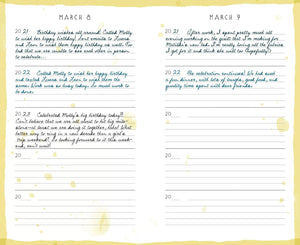 MARCH 8
20 21 Birthday wishes all around. Called Molly
to wish her happy birthday. Sent emails to Laura
and Sam to wish them happy birthday as well. For
that we were unable to see each other in person
to celebrate...
20 22 Called Molly to wish her happy birthday
and texted Laura and Sam to wish them the
same. Work was so busy today. So must work to
be done.
20 23 Celebrated Molly's big birthday today!!
Can't believe that we are all about to hit big
at least we are doing it together, tho! What
better way to ring in a new decade than a girl's
trip weekend! So looking forward to it this week-
end, can't wait!
20
20
MARCH 9
20 21 After work, I spent pretty much all
evening working on the quilt that I'm making for
Matilda's new I'm really loving all the fabrics
I got for it and think she will too (hopefully)!
20 22 The celebration continues! We had such
a fun dinner, with lots of laughs, good food, and
quality time spent with dear friends.
20
20
20